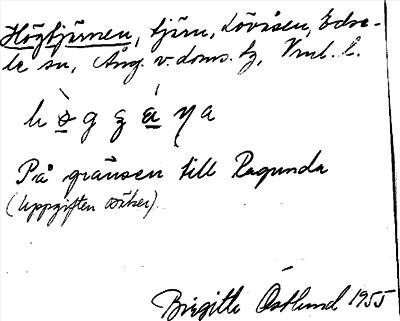 Högtjärnen, tjärn, Lövåsen, Edse-
le sn, Ång. v. doms. tg,
På gränsen till Ragunda
(uppgiften osäker).
Birgitta Östlund 1955